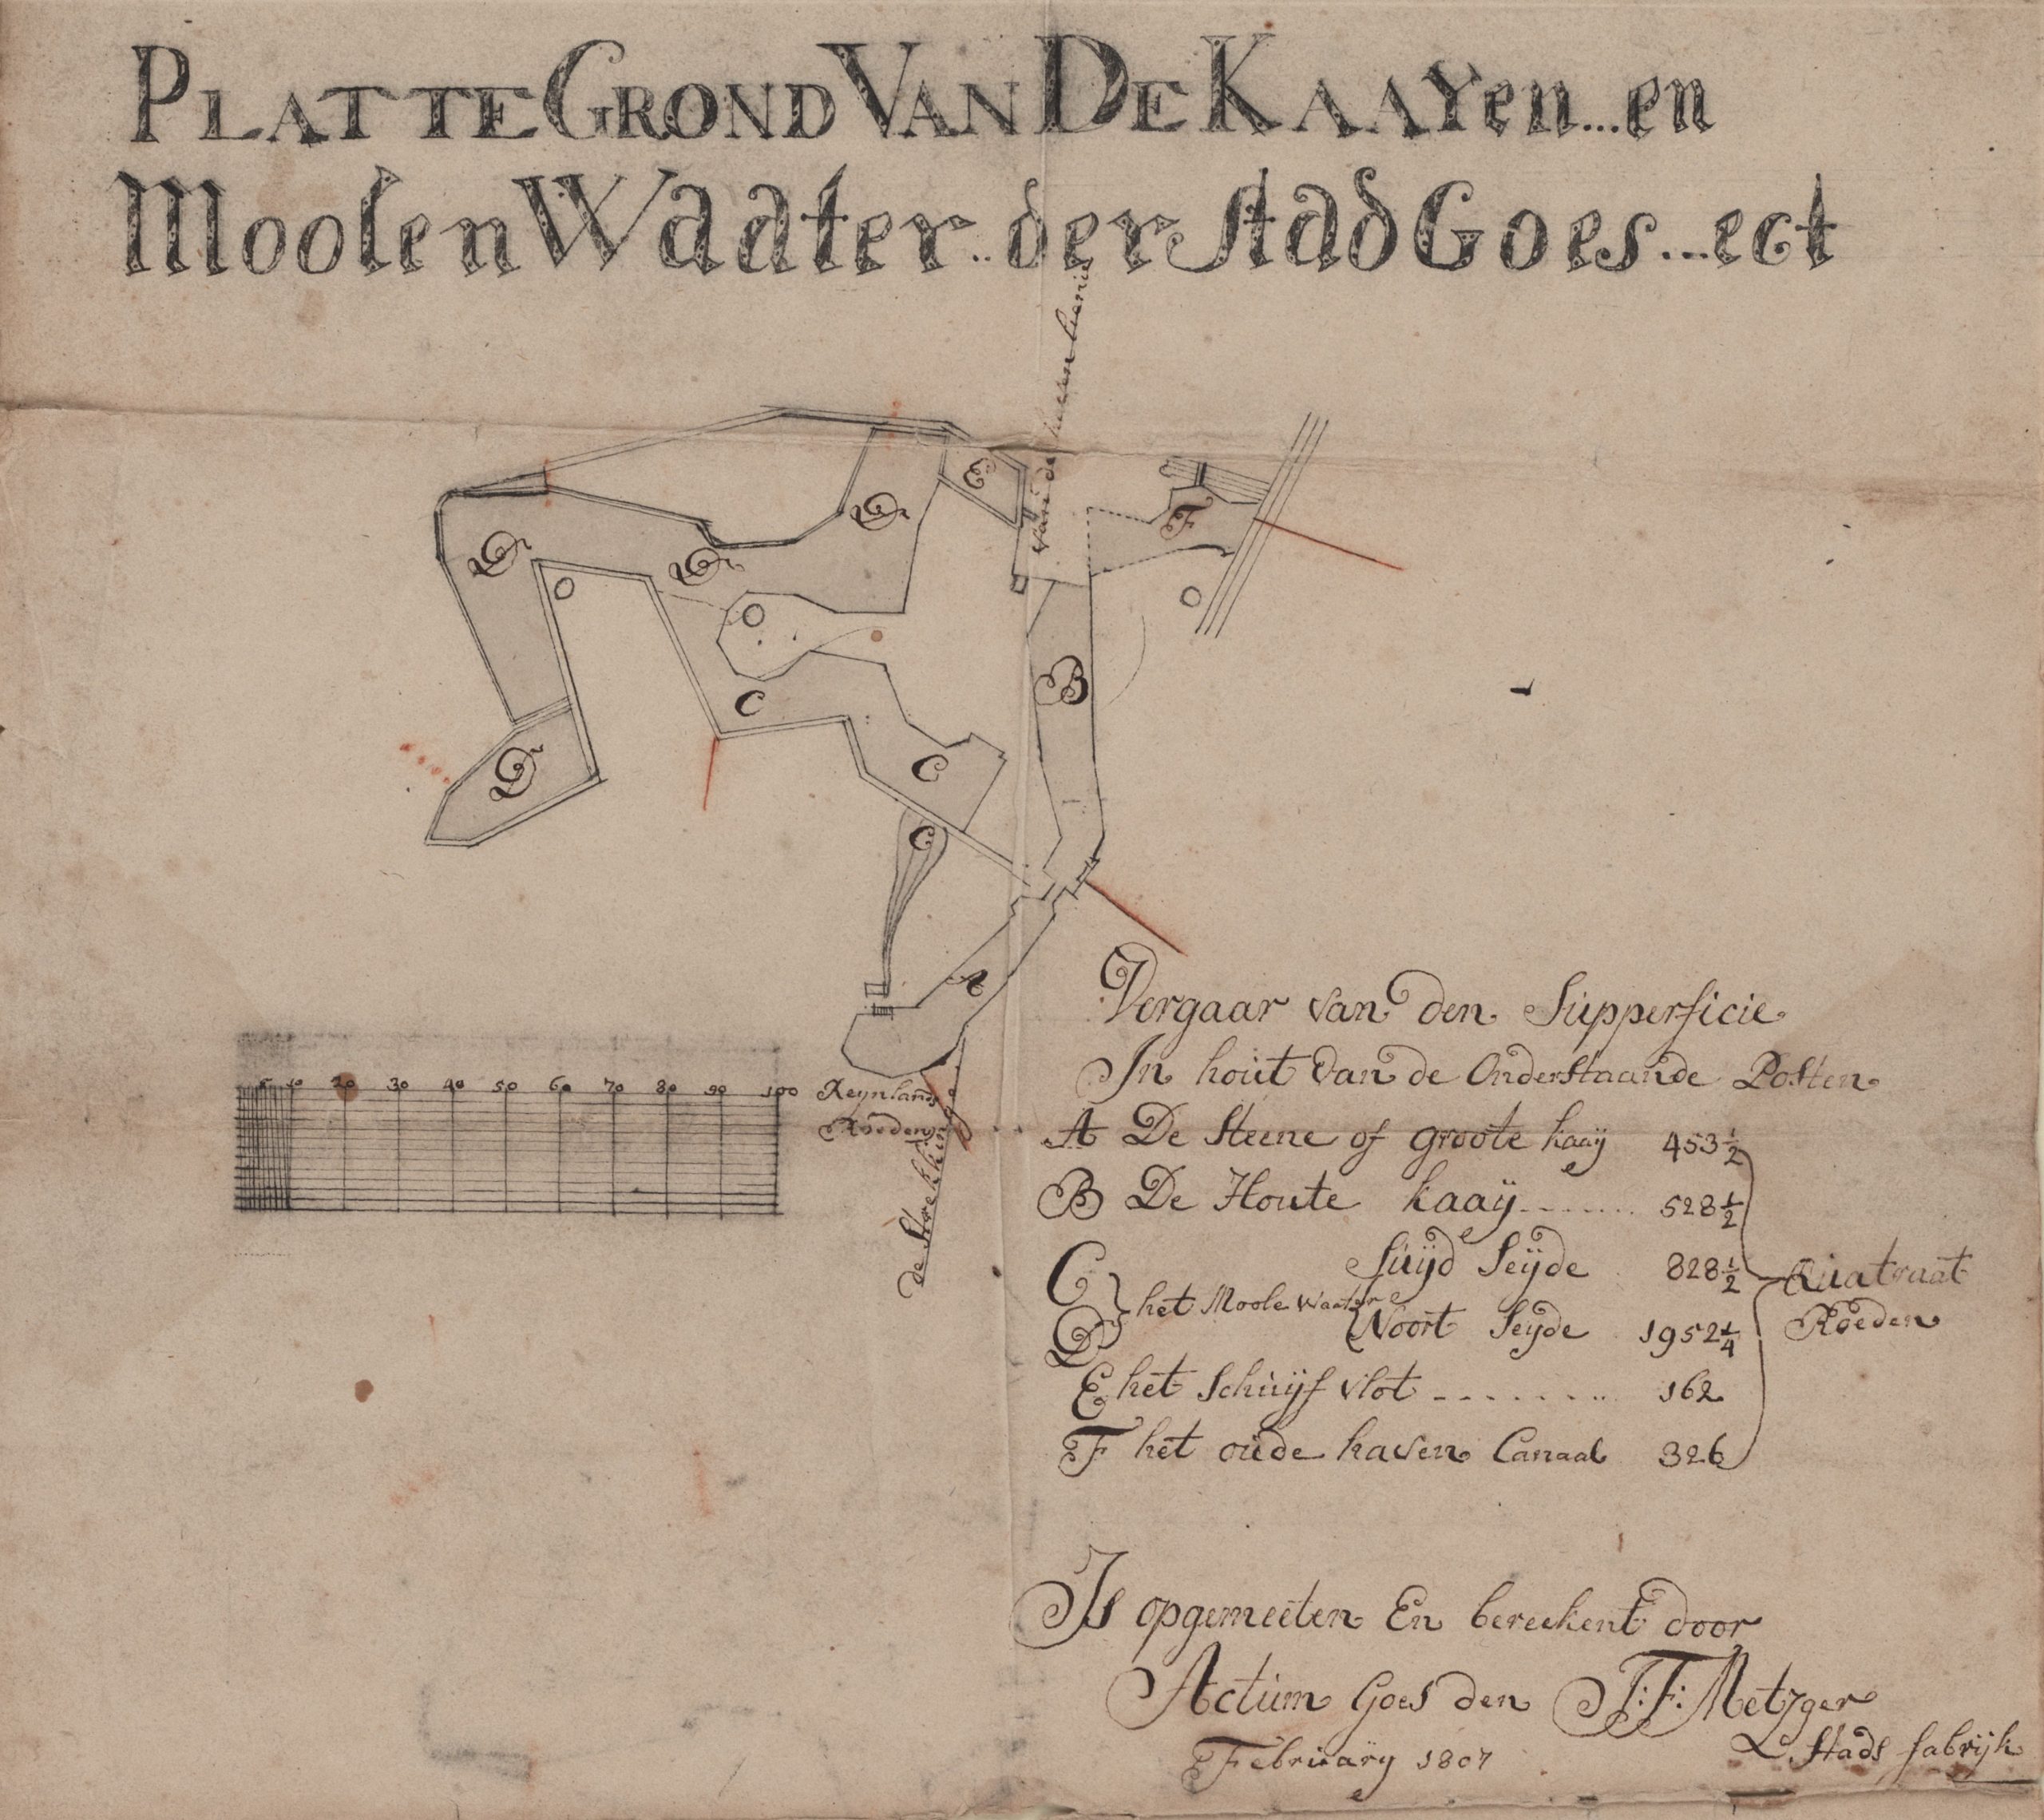 PLATTE GROND VAN DE KAAYen...en
Moolen Waater..der stad Goes...ect
van de heeren
E
D
D
D
F
O
O
O
B
C
C
D
C
A
5 10 20 30 40 50 60 70 80 90 100 Reynlands
Roeden
de strekking
Vergaar van den Supperficie
In hout van de Onderstaande Posten
A De Steene of groote kaaij 453 1/2
B De Houte kaaij....... 528 1/2
C Suijd Seijde 828 1/2
het Moole Waater
D Noort Seijde 1952 1/4
Quatraat
Roeden
E het Schuijf vlot ........ 162
F het oude haven Canaal 326
Is opgemeeten En bereekent door
Actum Goes den J:F: Metzger
Februarij 1807
Stads fabrijk